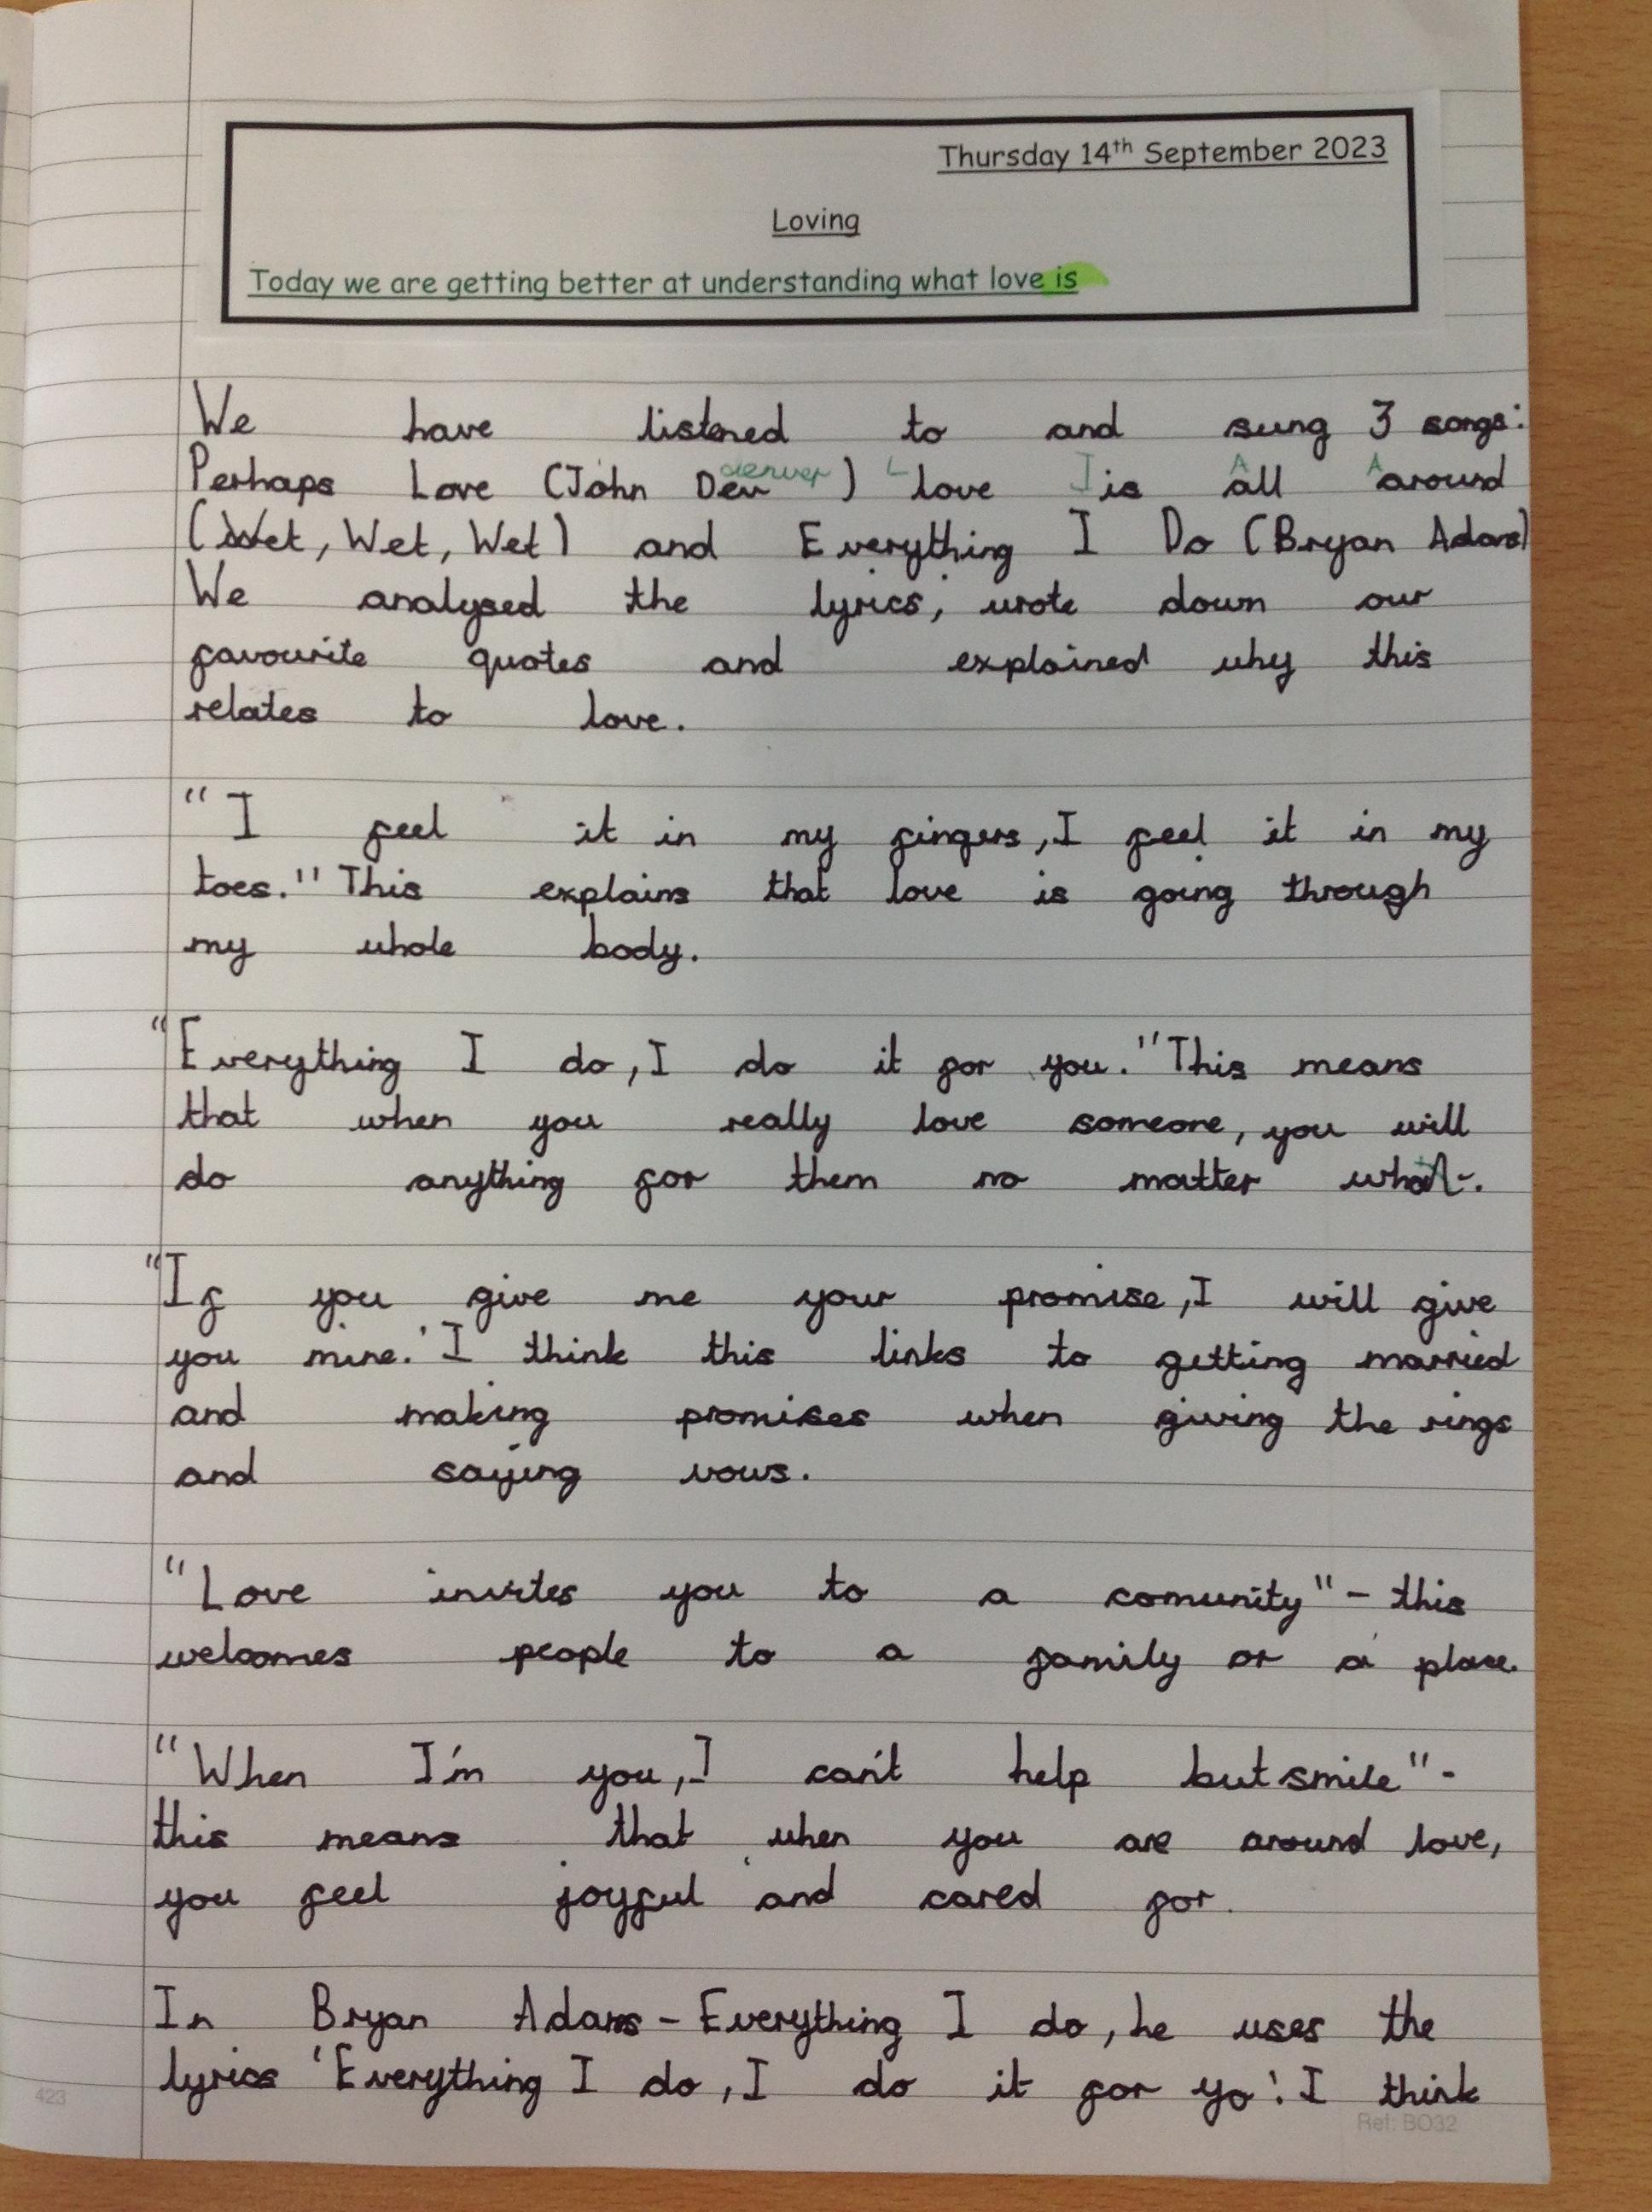 Thursday 14th September 2023
Loving
Today we are getting better at understanding what love is
We have listened to and sung 3 songs:
Perhaps Love (John Den denver) Llove Iis Aall Aaround
(Wet, Wet, Wet) and Everything I Do (Bryan Adams)
We analysed the lyrics, wrote down our
favourite quotes and explained why this
relates to love.
"I feel it in my fingers, I feel it in my
toes." This explains that love is going through
my whole body.
"Everything I do, I do it for you." This means
that when you really love someone, you will
do anything for them no matter what.
"If you give me your promise, I will give
you mine.' I think this links to getting married
and making promises when giving the rings
and saying vows.
"Love invites you to a comunity" - this
welcomes people to a family or a place.
"When I'm you, I can't help but smile" -
this means that when you are around love,
you feel joyful and cared for.
In Bryan Adams - Everything I do, he uses the
lyrics 'Everything I do, I do it for yo'. I think
423
Ref: BO32